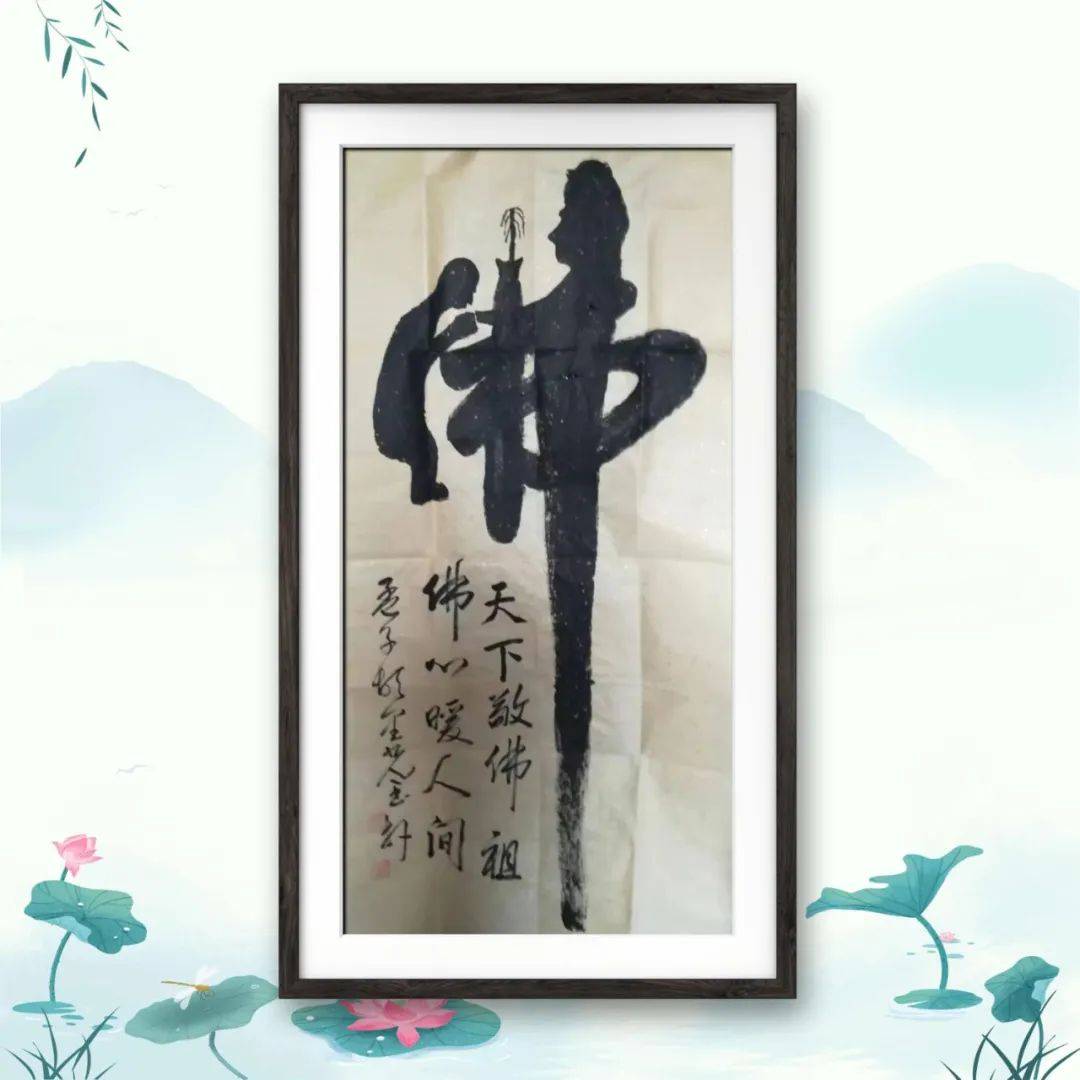 佛
天下敬佛祖
佛心暖人间
孟子故里